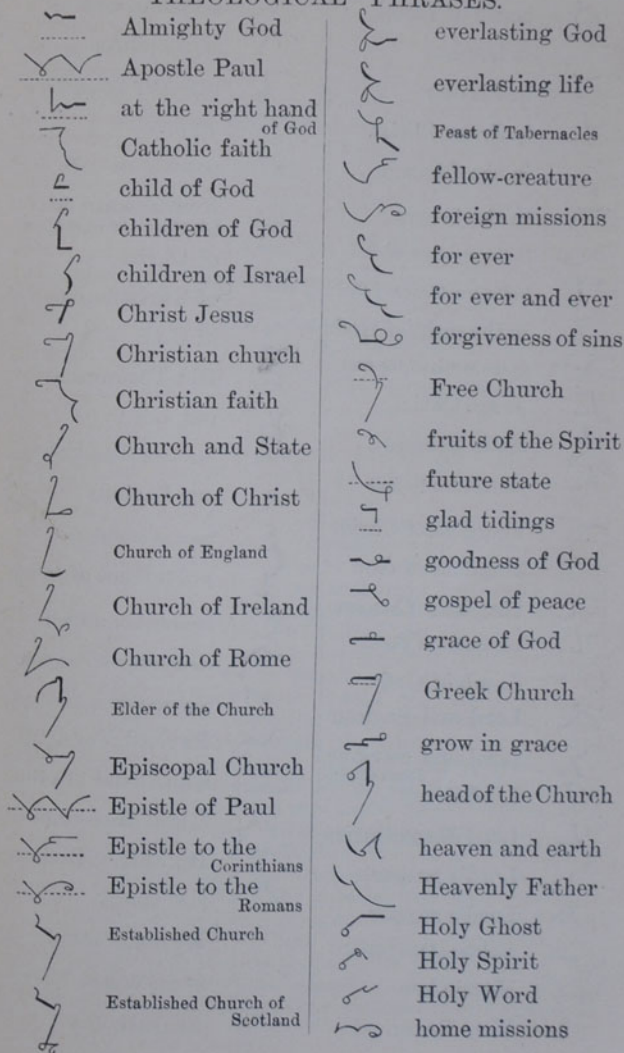 THEOLOGICAL PHRASES.
Almighty God
Apostle Paul
at the right hand
of God
Catholic faith
child of God
children of God
children of Israel
Christ Jesus
Christian church
Christian faith
Church and State
Church of Christ
Church of England
Church of Ireland
Church of Rome
Elder of the Church
Episcopal Church
Epistle of Paul
Epistle to the
Corinthians
Epistle to the
Romans
Established Church
Established Church of
Scotland
everlasting God
everlasting life
Feast of Tabernacles
fellow-creature
foreign missions
for ever
for ever and ever
forgiveness of sins
Free Church
fruits of the Spirit
future state
glad tidings
goodness of God
gospel of peace
grace of God
Greek Church
grow in grace
head of the Church
heaven and earth
Heavenly Father
Holy Ghost
Holy Spirit
Holy Word
home missions